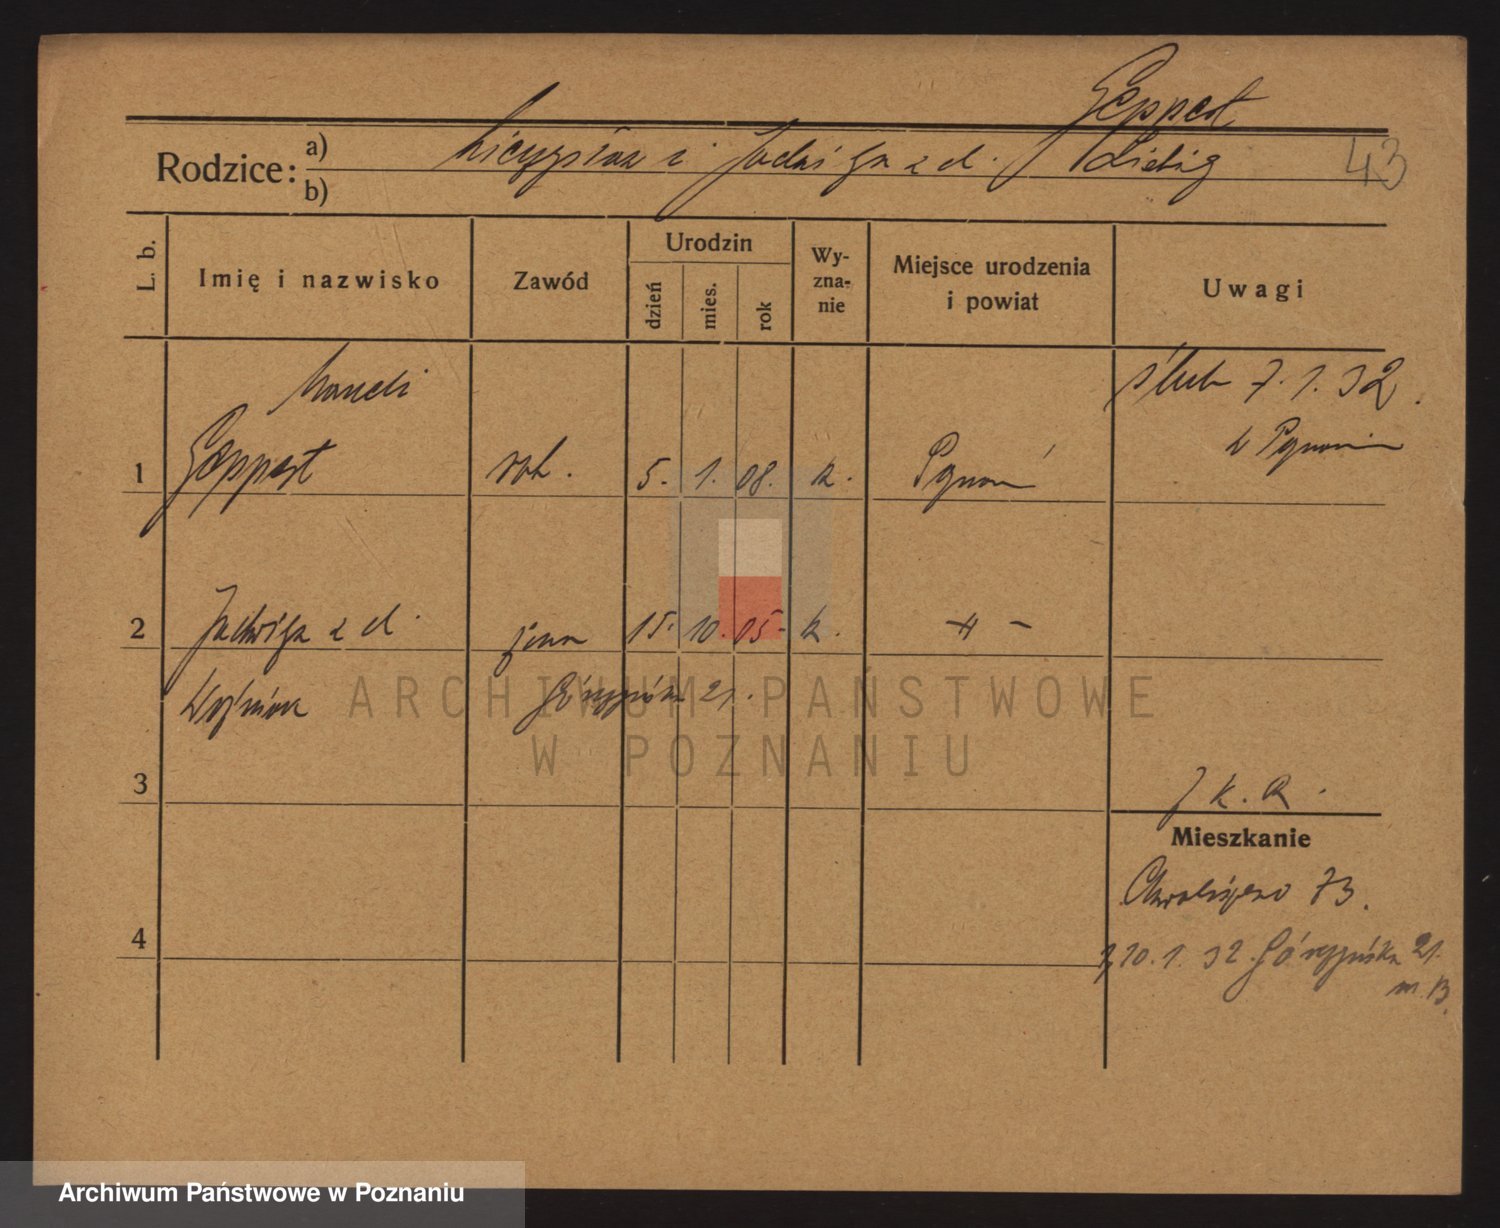 Geppert
Rodzice: a) Mieczysław i Jadwiga z d. Liebig
43
b)
L. b.
Imię i nazwisko
Zawód
Urodzin
dzień
mies.
rok
Wy-
zna-
nie
Miejsce urodzenia
i powiat
Uwagi
ślub 7.1.32.
w Poznaniu
1 Geppert rob. 5. 1. 08. k. Poznań
2 Jadwiga z d. żona 15. 10. 05. k. - 11 -
Woźniak 21.
ARCHIWUM PAŃSTWOWE
W POZNANIU
3
Mieszkanie
73.
4
20.1.32. 21.
m.
Archiwum Państwowe w Poznaniu